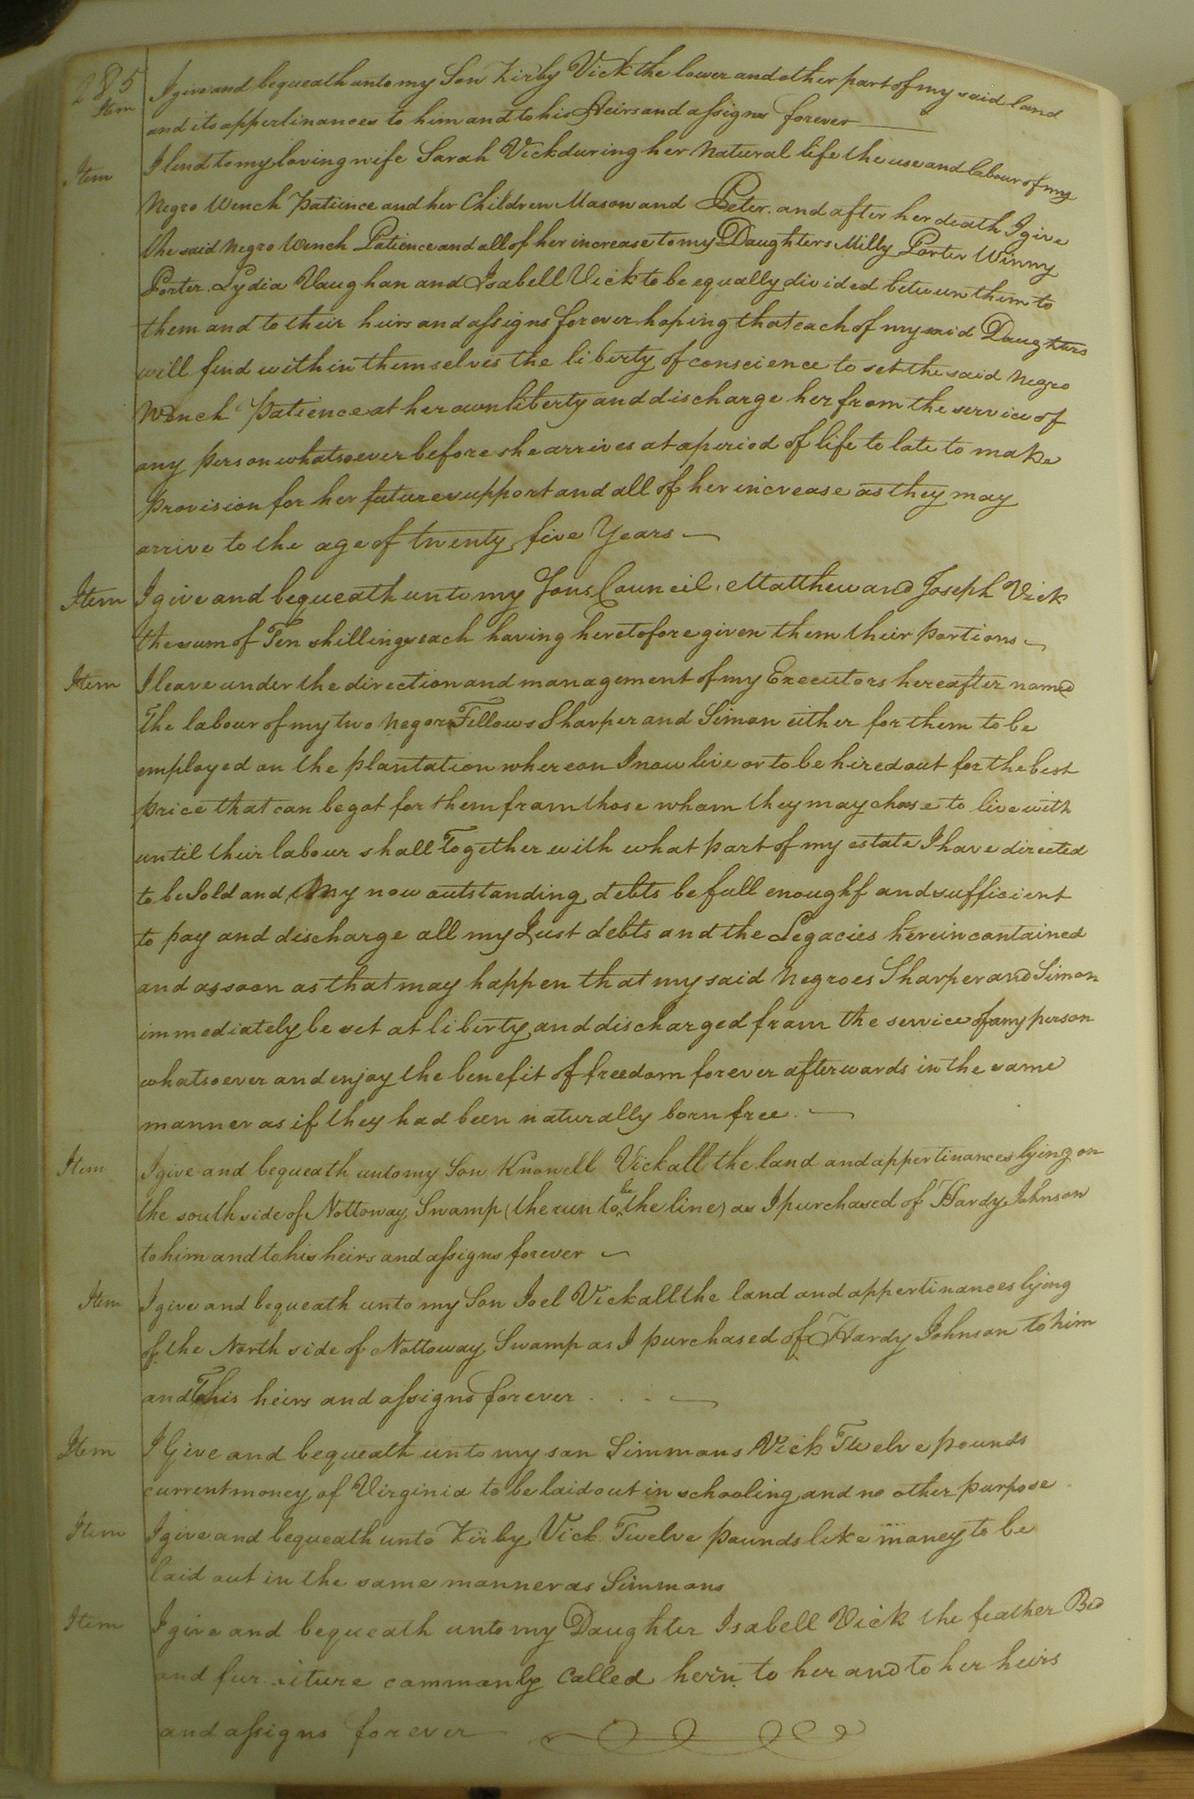 285
Item I give and bequeath unto my Son Kirby Vick the lower and other part of my said land
and its appertinances to him and to his Heirs and assigns forever
Item I lend to my loving wife Sarah Vick during her Natural life the use and labour of my
Negro Wench Patience and her Children Mason and Peter. and after her death I give
the said Negro Wench Patience and all of her increase to my Daughters Milly Porter Winny
Porter. Lydia Vaughan and Isabell Vick to be equally divided between them to
them and to their heirs and assigns forever hoping that each of my said Daughters
will find within themselves the liberty of conscience to set the said Negro
Wench Patience at her own liberty and discharge her from the service of
any person whatsoever before she arrives at a period of life to late to make
Provision for her future support and all of her increase as they may
arrive to the age of twenty five Years
Item I give and bequeath unto my Sons Council, Matthew and Joseph Vick
the sum of Ten shillings each having heretofore given them their portions
Item I leave under the direction and management of my Executors hereafter named
The labour of my two Negro Fellows Sharper and Simon either for them to be
employed on the plantation whereon I now live or to be hired out for the best
price that can be got for them from those wham they may chose to live with
until their labour shall Together with what part of my estate I have directed
to be Sold and my now outstanding debts be full enough and sufficient
to pay and discharge all my Just debts and the Legacies herein contained
and as soon as that may happen that my said Negroes Sharper and Simon
immediately be set at liberty and discharged from the service of any person
whatsoever and enjoy the benefit of freedom forever afterwards in the same
manner as if they had been naturally born free.
Item I give and bequeath unto my Son Knowell Vick all the land and appertinances lying on
the south side of Nottoway Swamp (the run to be the line) as I purchased of Hardy Johnson
to him and to his heirs and assigns forever
Item I give and bequeath unto my Son Joel Vick all the land and appertinances lying
of the North side of Nottoway Swamp as I purchased of Hardy Johnson to him
and To his heirs and assigns forever
Item I Give and bequeath unto my son Simmons Vick Twelve pounds
current money of Virginia to be laid out in schooling and no other purpose
Item I give and bequeath unto Kirby Vick Twelve pounds like money to be
laid out in the same manner as Simmons
Item I give and bequeath unto my Daughter Isabell Vick the feather Bed
and furniture commonly called hern to her and to her heirs
and assigns forever